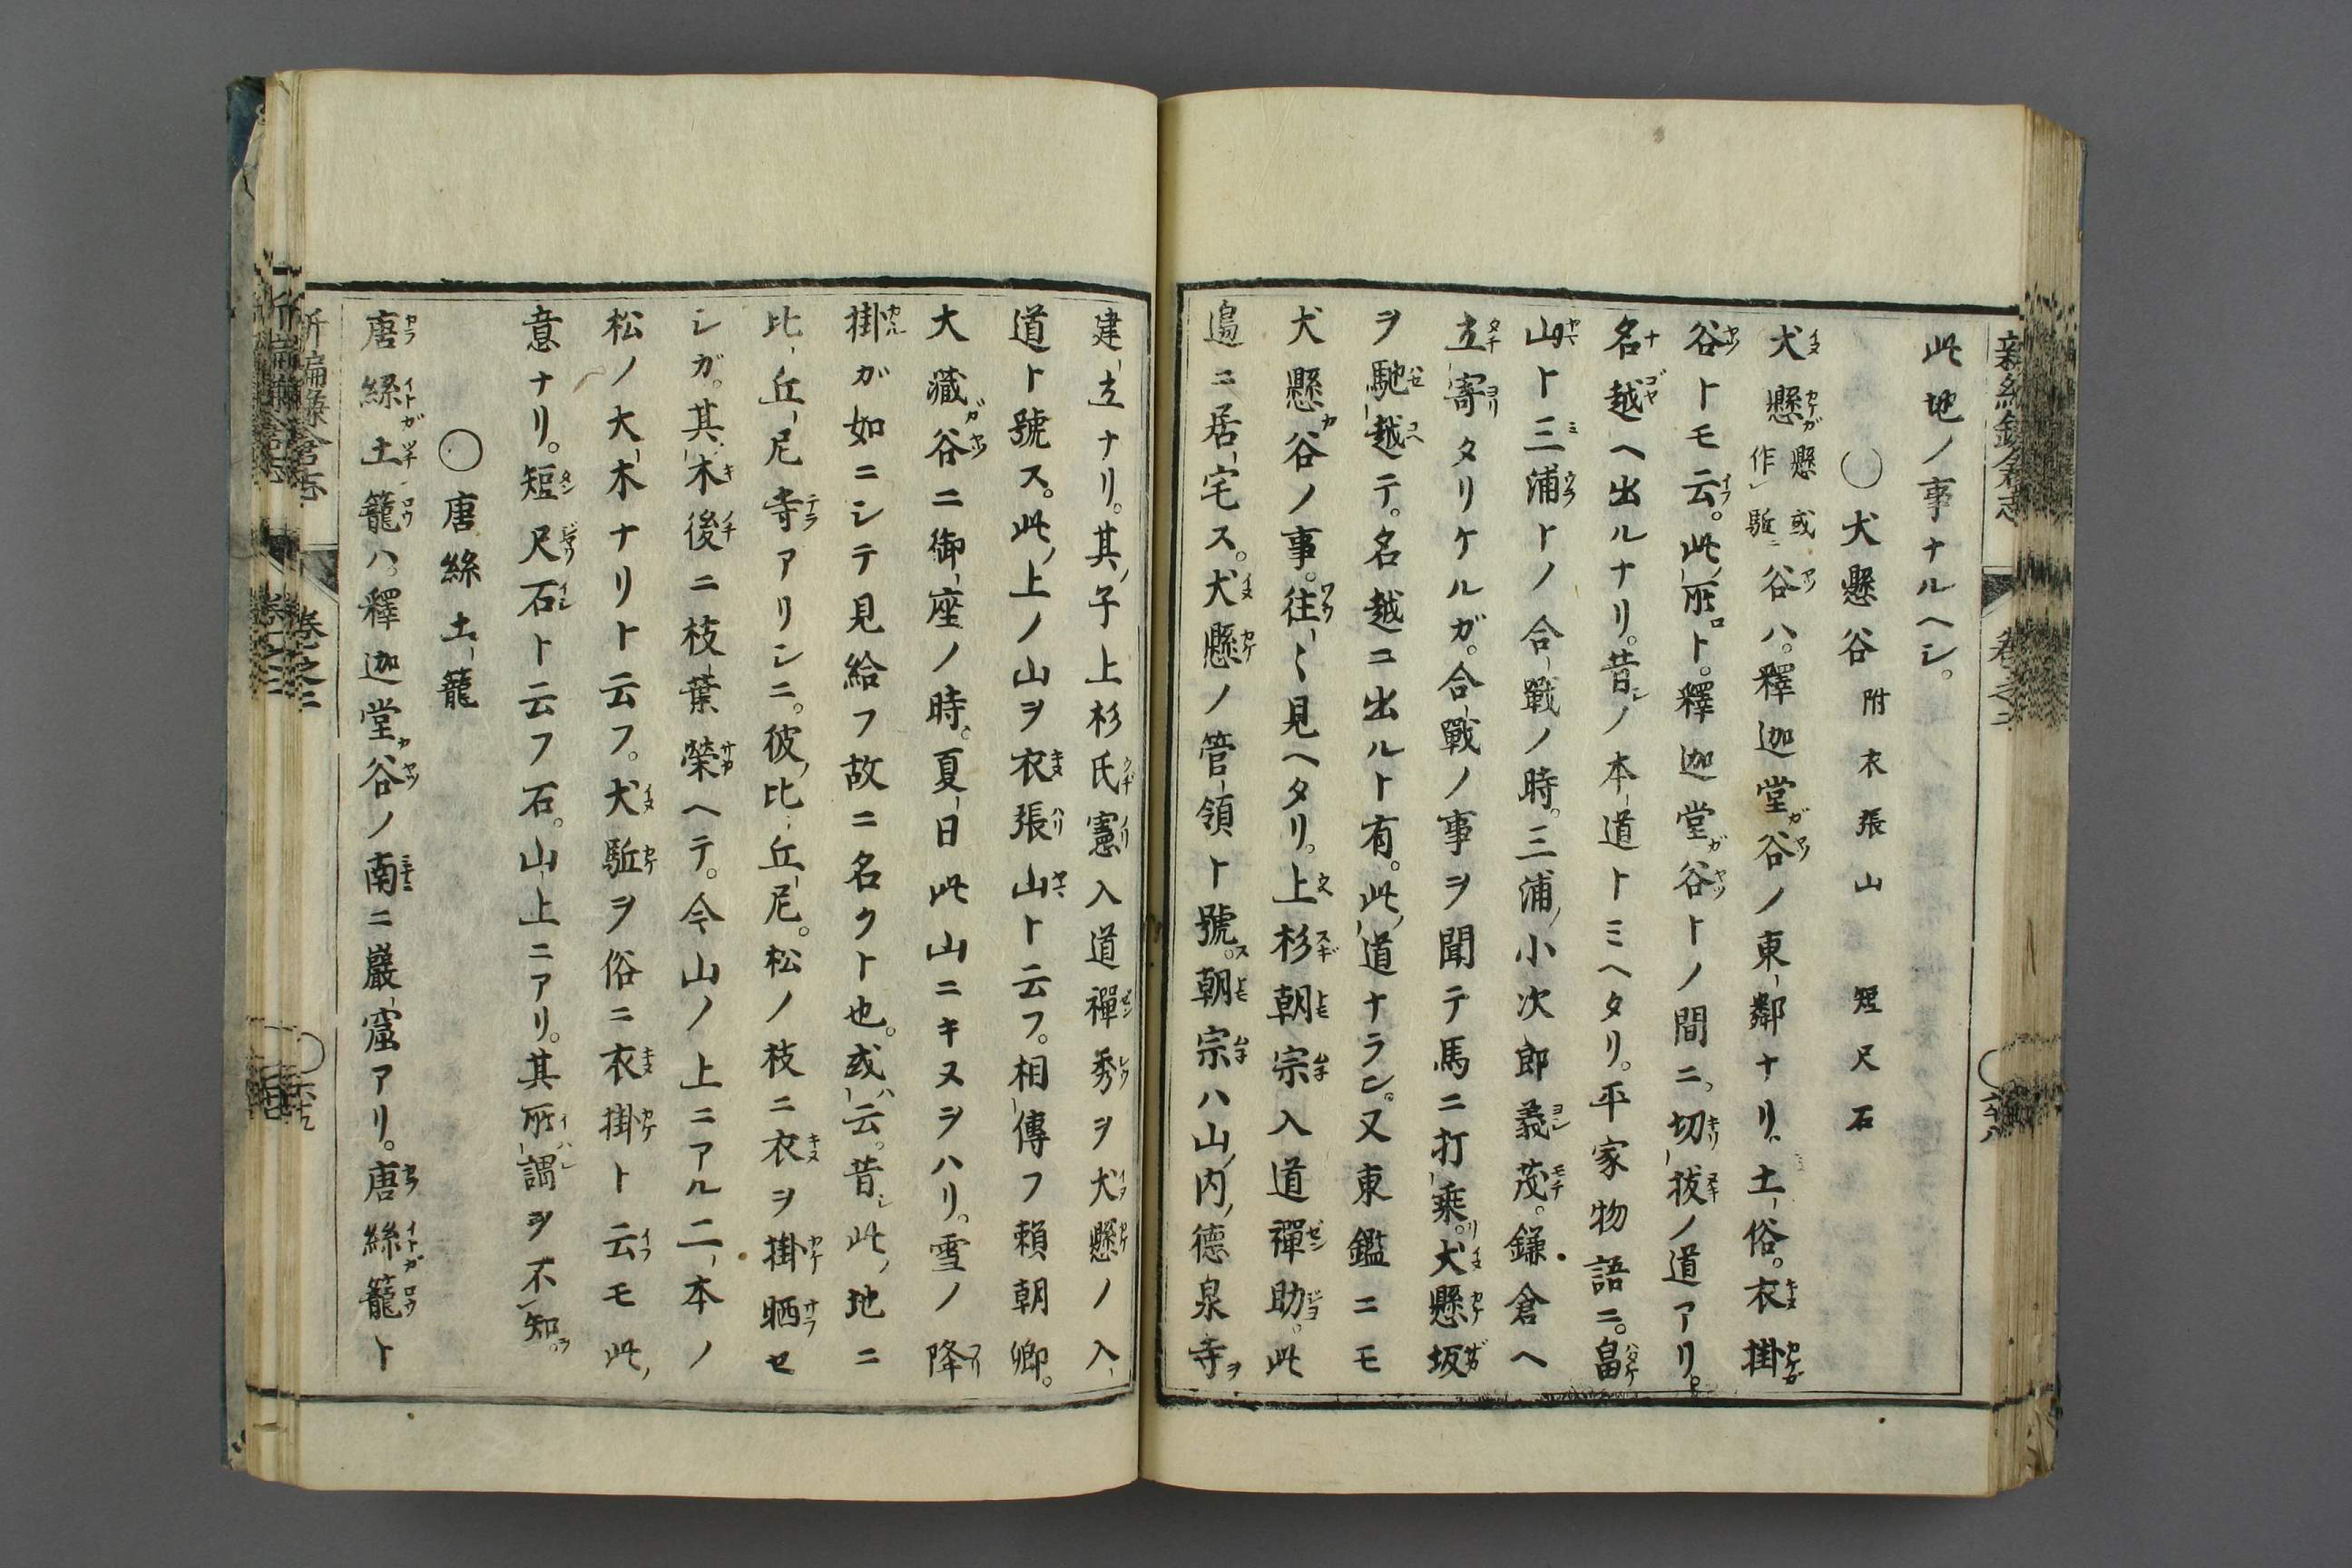 此地ノ事ナルヘシ。
〇犬懸谷 附衣張山 短尺石
犬懸懸或作駈谷ハ。釋迦堂谷ノ東鄰ナリ。土俗。衣掛
谷トモ云。此所ト。釋迦堂谷トノ間ニ。切拔ノ道アリ。
名越ヘ出ルナリ。昔ノ本道トミヘタリ。平家物語ニ。畠
山ト三浦トノ合戰ノ時。三浦小次郎義茂。鎌倉ヘ
立寄タリケルガ。合戰ノ事ヲ聞テ馬ニ打乘。犬懸坂
ヲ馳越テ。名越ニ出ルト有。此道ナラン。又東鑑ニモ
犬懸谷ノ事。往〻見ヘタリ。上杉朝宗入道禪助。此
邊ニ居宅ス。犬懸ノ管領ト號。朝宗ハ山内德泉寺
建立ナリ。其子上杉氏憲入道禪秀ヲ犬懸ノ入
道ト號ス。此上ノ山ヲ衣張山ト云フ。相傳フ賴朝卿。
大藏谷ニ御座ノ時。夏日此山ニキヌヲハリ。雪ノ降
掛ガ如ニシテ見給フ故ニ名クト也。或云。昔此地ニ
比丘尼寺アリシニ。彼比丘尼。松ノ枝ニ衣ヲ掛晒セ
シガ。其木後ニ枝葉榮ヘテ。今山ノ上ニアル二本ノ
松ノ大木ナリト云フ。犬駈ヲ俗ニ衣掛ト云モ此
意ナリ。短尺石ト云フ石。山上ニアリ。其所謂ヲ不知。
〇唐絲土籠
唐絲土籠ハ。釋迦堂谷ノ南ニ巖窟アリ。唐絲籠ト